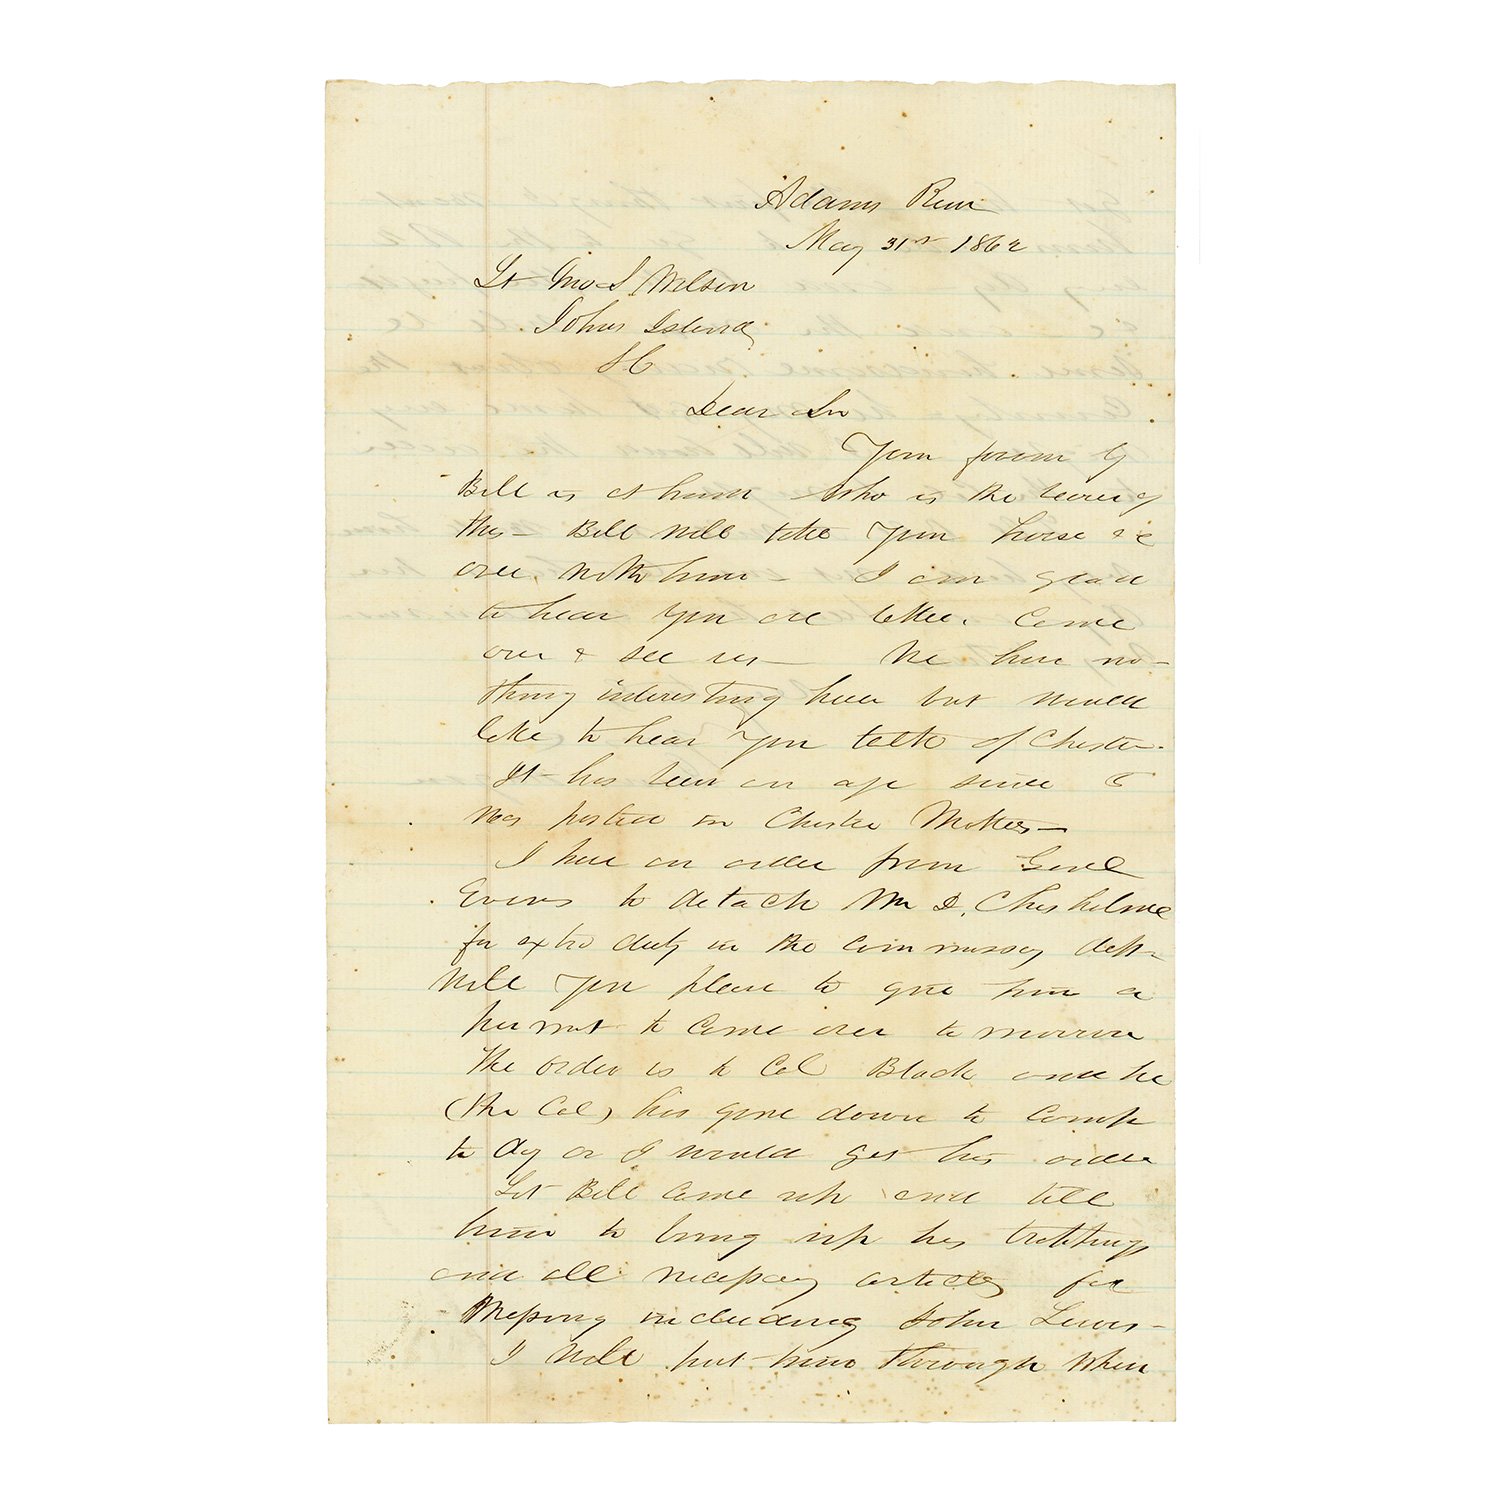 Adams Run
May 31st 1862
Lt Jno S Wilson
Johns Island
S C
Dear Sir
Your favor by
Bill is at hand who is the bearer of
this - Bill will take your horse &c
over with him - I am glad
to hear you are better. Come
over & see us - We have no-
thing interesting here but would
like to hear you talk of Chester.
It has been an age since I
was posted in Chester Matters -
I have an order from Genl
Evans to detach Mr D. Chisholme
for extra duty in the commissary dept -
Will you please to give him a
permit to come over to morrow
The order is to Col Black and he
(the Col) has gone down to Camp
to day or I would get his order
Let Bill come up and tell
him to bring up his
and all necessary articles for
Messing including John Lewis -
I will put him through when